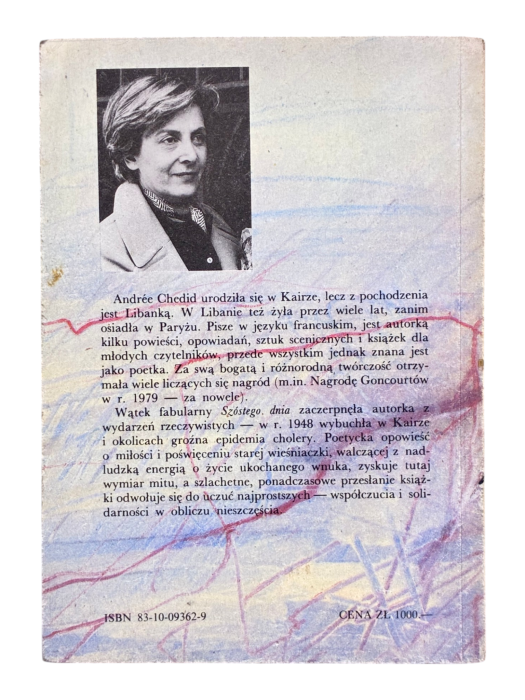 Andrée Chedid urodziła się w Kairze, lecz z pochodzenia
jest Libanką. W Libanie też żyła przez wiele lat, zanim
osiadła w Paryżu. Pisze w języku francuskim, jest autorką
kilku powieści, opowiadań, sztuk scenicznych i książek dla
młodych czytelników, przede wszystkim jednak znana jest
jako poetka. Za swą bogatą i różnorodną twórczość otrzy-
mała wiele liczących się nagród (m.in. Nagrodę Goncourtów
w r. 1979 — za nowele).
Wątek fabularny Szóstego dnia zaczerpnęła autorka z
wydarzeń rzeczywistych — w r. 1948 wybuchła w Kairze
i okolicach groźna epidemia cholery. Poetycka opowieść
o miłości i poświęceniu starej wieśniaczki, walczącej z nad-
ludzką energią o życie ukochanego wnuka, zyskuje tutaj
wymiar mitu, a szlachetne, ponadczasowe przesłanie książ-
ki odwołuje się do uczuć najprostszych — współczucia i soli-
darności w obliczu nieszczęścia.
ISBN 83-10-09362-9
CENA ZŁ 1000.—